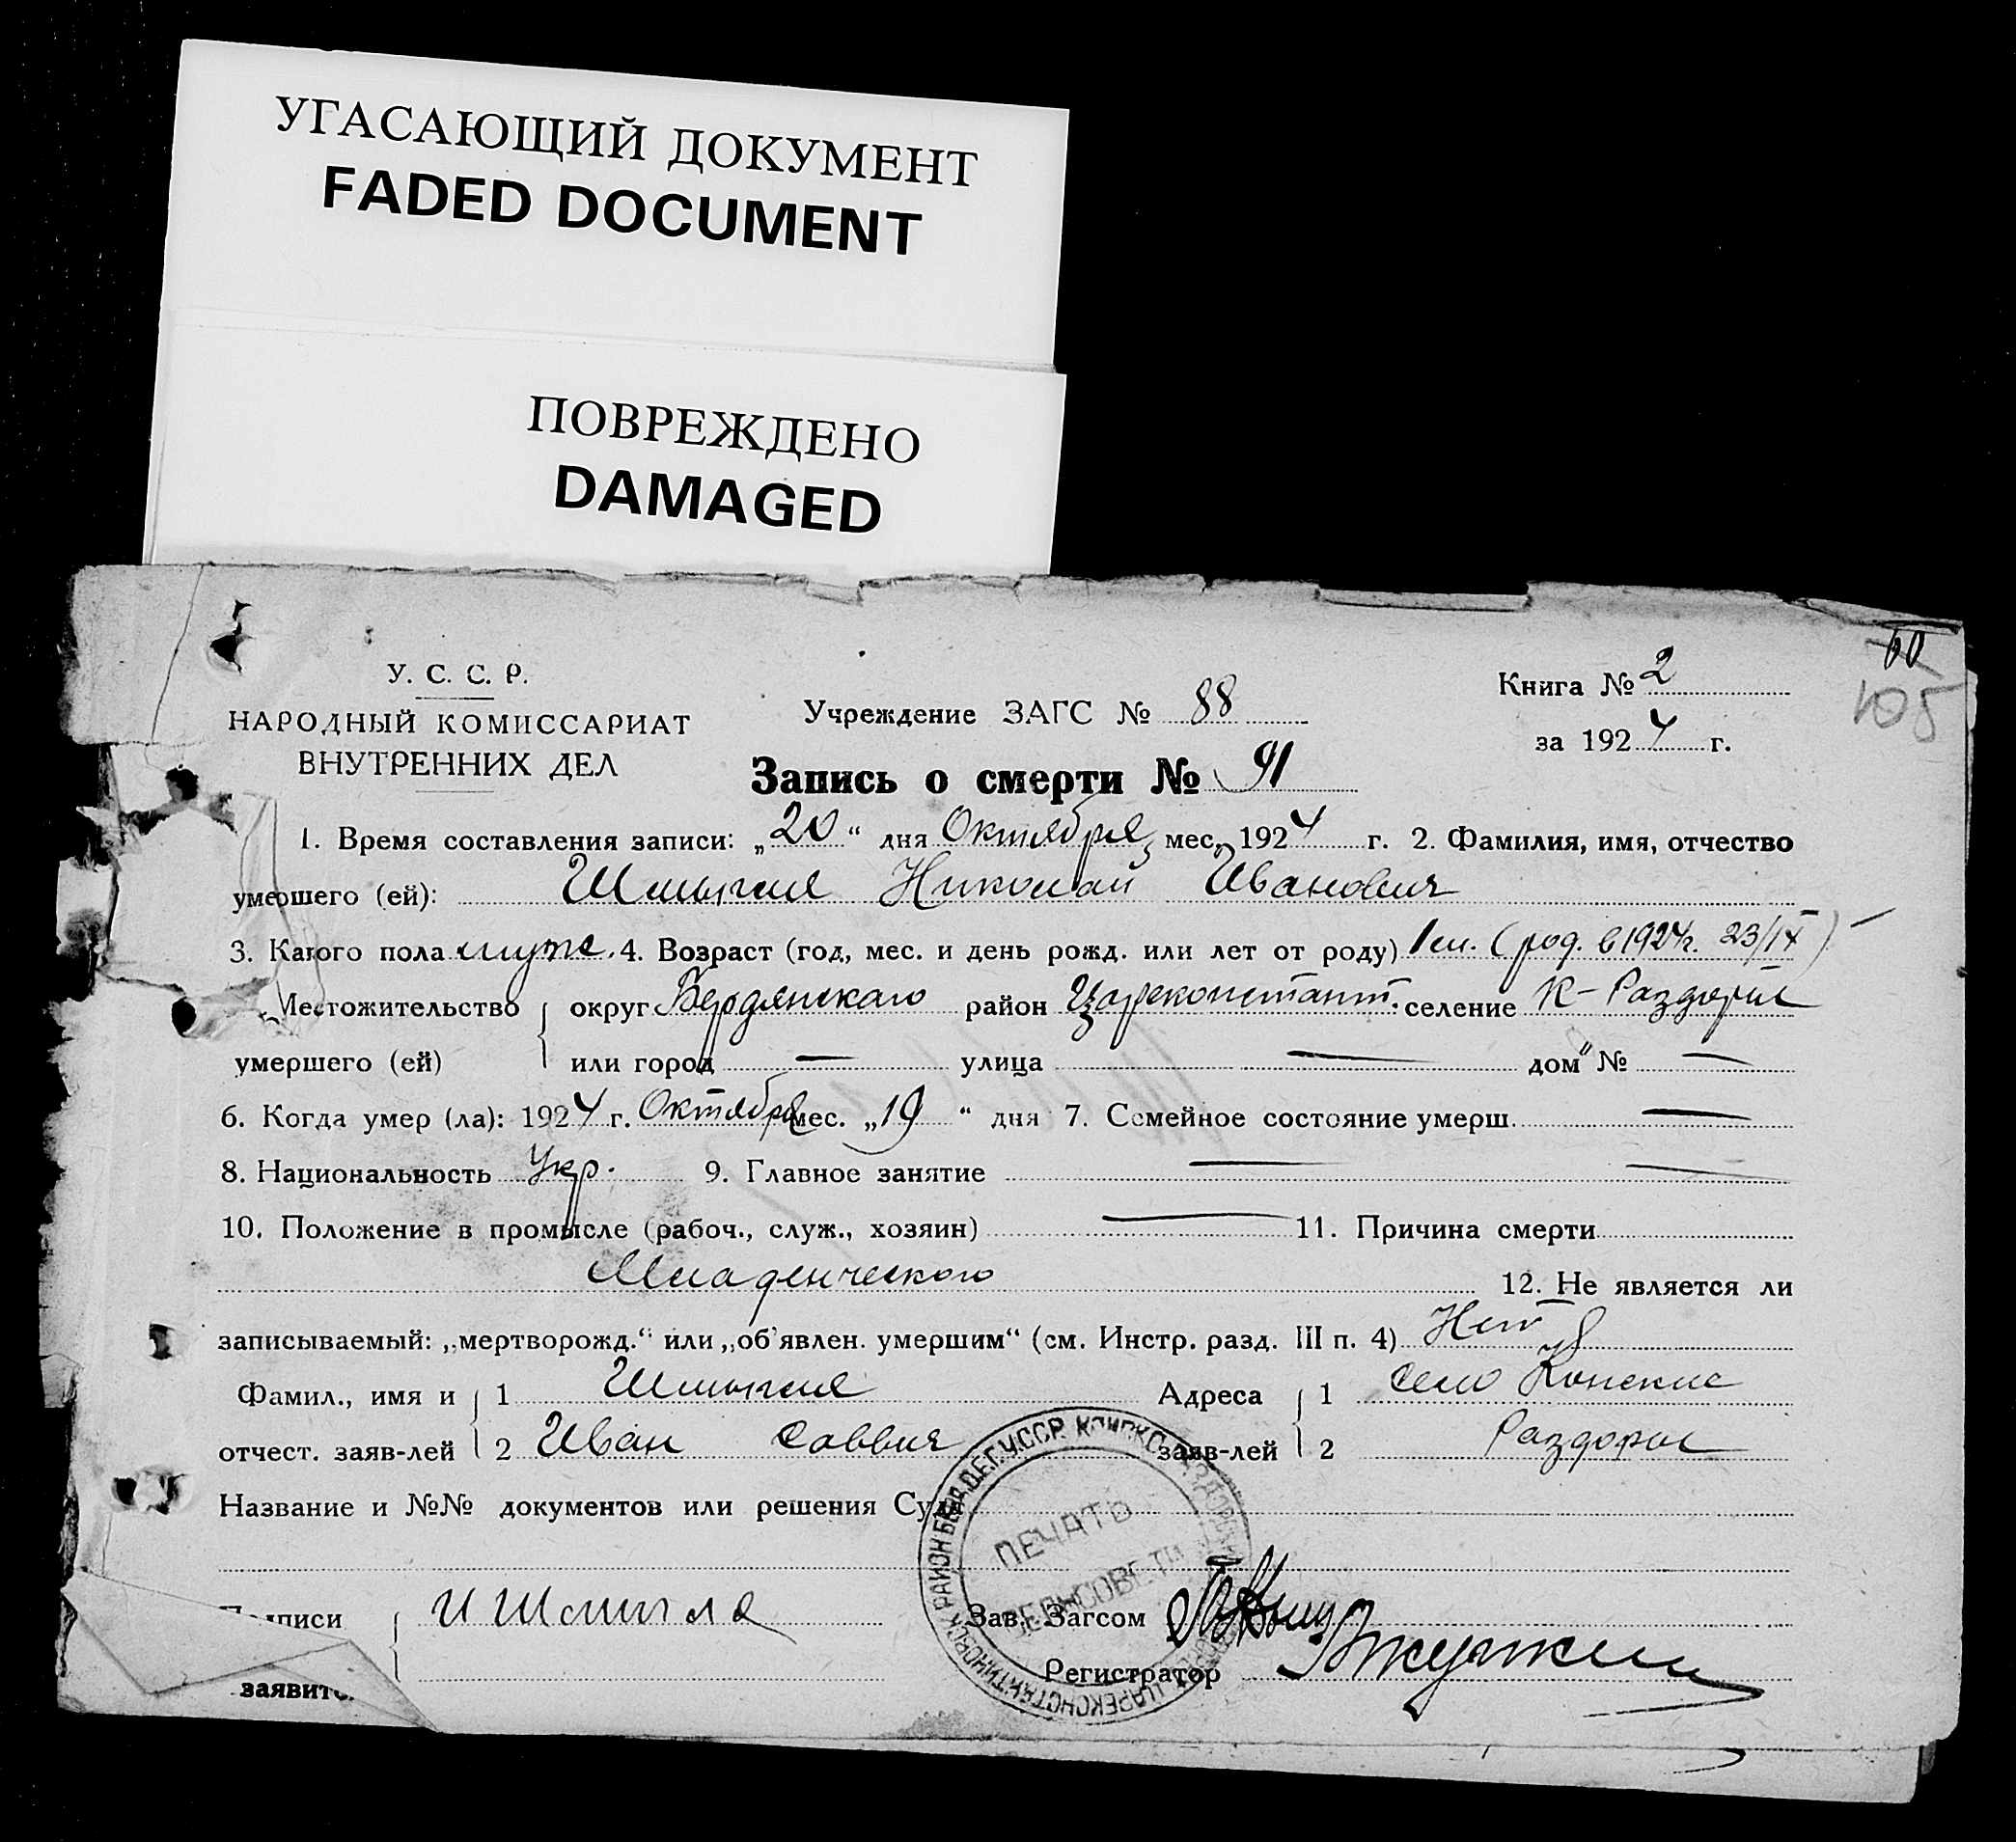 УГАСАЮЩИЙ ДОКУМЕНТ
FADED DOCUMENT
ПОВРЕЖДЕНО
DAMAGED
60
105
У. С. С. Р.
НАРОДНЫЙ КОМИССАРИАТ
ВНУТРЕННИХ ДЕЛ
Учреждение ЗАГС № 88
Книга № 2
за 1924 г.
Запись о смерти № 91
1. Время составления записи: „20“ дня Октября мес. 1924 г. 2. Фамилия, имя, отчество
умершего (ей): Шмыгля Николай Иванович
3. Какого пола муж. 4. Возраст (год, мес. и день рожд. или лет от роду) 1 м. (род. в 1924 г. 23/IX)
Местожительство округ Бердянского район Цареконстант. селение К-Раздоры
умершего (ей) или город — улица — дом № —
6. Когда умер (ла): 1924 г. Октября мес. „19“ дня 7. Семейное состояние умерш. —
8. Национальность Укр. 9. Главное занятие — —
10. Положение в промысле (рабоч., служ., хозяин) — 11. Причина смерти
Младенческого 12. Не является ли
записываемый: „мертворожд.“ или „об'явлен. умершим“ (см. Инстр. разд. III п. 4) Нет
Фамил., имя и 1 Шмыгля Адреса 1 село Конские
отчест. заяв-лей 2 Иван Саввич заяв-лей 2 Раздоры
Название и №№ документов или решения Суда
ПЕЧАТЬ
СЕЛЬСОВЕТА
Подписи И Шмигля Зав. Загсом
заявит. Регистратор